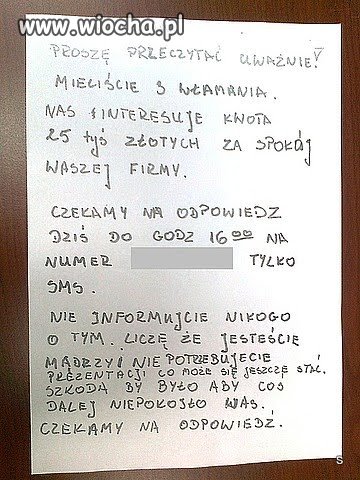 www.wiocha.pl
PROSZĘ PRZECZYTAĆ UWAŻNIE!
MIELIŚCIE 3 WŁAMANIA.
NAS INTERESUJE KWOTA
25 tyś ZŁOTYCH ZA SPOKÓJ
WASZEJ FIRMY.
CZEKAMY NA ODPOWIEDZ
DZIŚ DO GODZ 16 00 NA
NUMER TYLKO
SMS.
NIE INFORMUJCIE NIKOGO
O TYM. LICZĘ ŻE JESTEŚCIE
MĄDRZY I NIE POTRZEBUJECIE
PREZENTACJI CO MOŻE SIĘ JESZCZE STAĆ.
SZKODA BY BYŁO ABY COŚ
DALEJ NIEPOKOJŁO WAS.
CZEKAMY NA ODPOWIEDŹ.